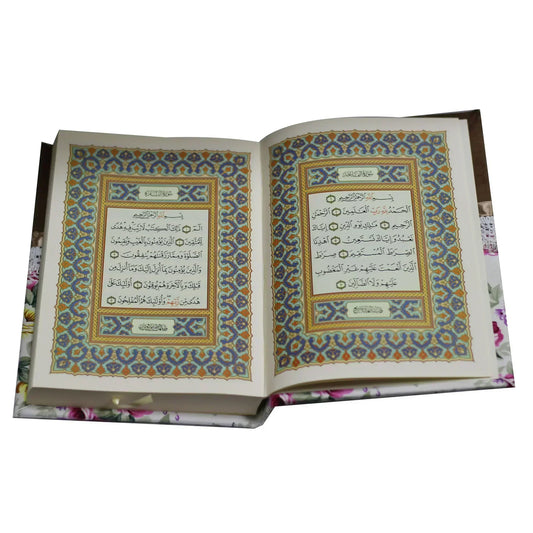 سورة الفاتحة
بِسْمِ اللَّهِ الرَّحْمَٰنِ الرَّحِيمِ ۝١
الْحَمْدُ لِلَّهِ رَبِّ الْعَالَمِينَ ۝٢ الرَّحْمَٰنِ
الرَّحِيمِ ۝٣ مَالِكِ يَوْمِ الدِّينِ ۝٤ إِيَّاكَ
نَعْبُدُ وَإِيَّاكَ نَسْتَعِينُ ۝٥ اهْدِنَا
الصِّرَاطَ الْمُسْتَقِيمَ ۝٦ صِرَاطَ
الَّذِينَ أَنْعَمْتَ عَلَيْهِمْ غَيْرِ الْمَغْضُوبِ
عَلَيْهِمْ وَلَا الضَّالِّينَ ۝٧
سورة البقرة
بِسْمِ اللَّهِ الرَّحْمَٰنِ الرَّحِيمِ
الم ۝١ ذَٰلِكَ الْكِتَابُ لَا رَيْبَ فِيهِ هُدًى
لِلْمُتَّقِينَ ۝٢ الَّذِينَ يُؤْمِنُونَ بِالْغَيْبِ وَيُقِيمُونَ
الصَّلَاةَ وَمِمَّا رَزَقْنَاهُمْ يُنْفِقُونَ ۝٣
وَالَّذِينَ يُؤْمِنُونَ بِمَا أُنْزِلَ إِلَيْكَ وَمَا أُنْزِلَ مِنْ
قَبْلِكَ وَبِالْآخِرَةِ هُمْ يُوقِنُونَ ۝٤ أُولَٰئِكَ عَلَىٰ
هُدًى مِنْ رَبِّهِمْ وَأُولَٰئِكَ هُمُ الْمُفْلِحُونَ ۝٥